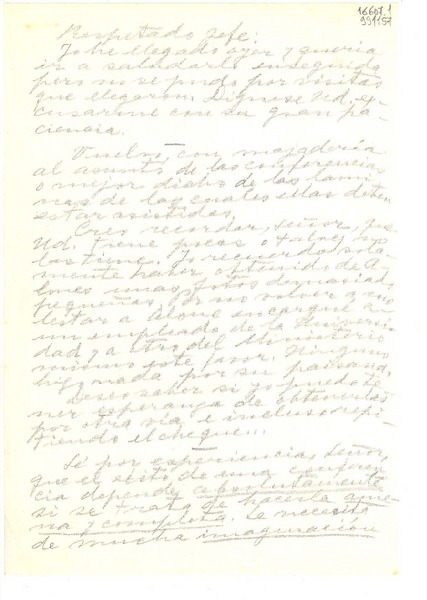 16607.1
991157
Respetado Jefe:
Yo he llegado ayer y quería
ir a saludarle enseguida
pero no se pudo por visitas
que llegaron. Dígnese Ud. ex-
cusarme con su gran pa-
ciencia.
Vuelvo, con majadería
al asunto de las conferencias
o mejor dicho de las lámi-
nas de las cuales ellas deben
estar asistidas.
Creo recordar, señor, que
Ud. tiene pocas o tal vez no
las tiene. Yo recuerdo sola-
mente haber obtenido de
unas fotos demasiado
pequeñas. Por no volver a mo-
lestar a encargué a
un empleado de la Universi-
dad y a otro del Ministerio
mismo este favor. Ninguno
hizo nada por su paisana.
Deseo saber si yo puedo te-
ner esperanza de obtenerlas
por otra vía e incluso repi-
tiendo el cheque...
Sé por experiencia, señor,
que el éxito de una conferen-
cia depende absolutamente
si se trata de hacerla ame-
na y completa. Se necesita
de mucha imaginación